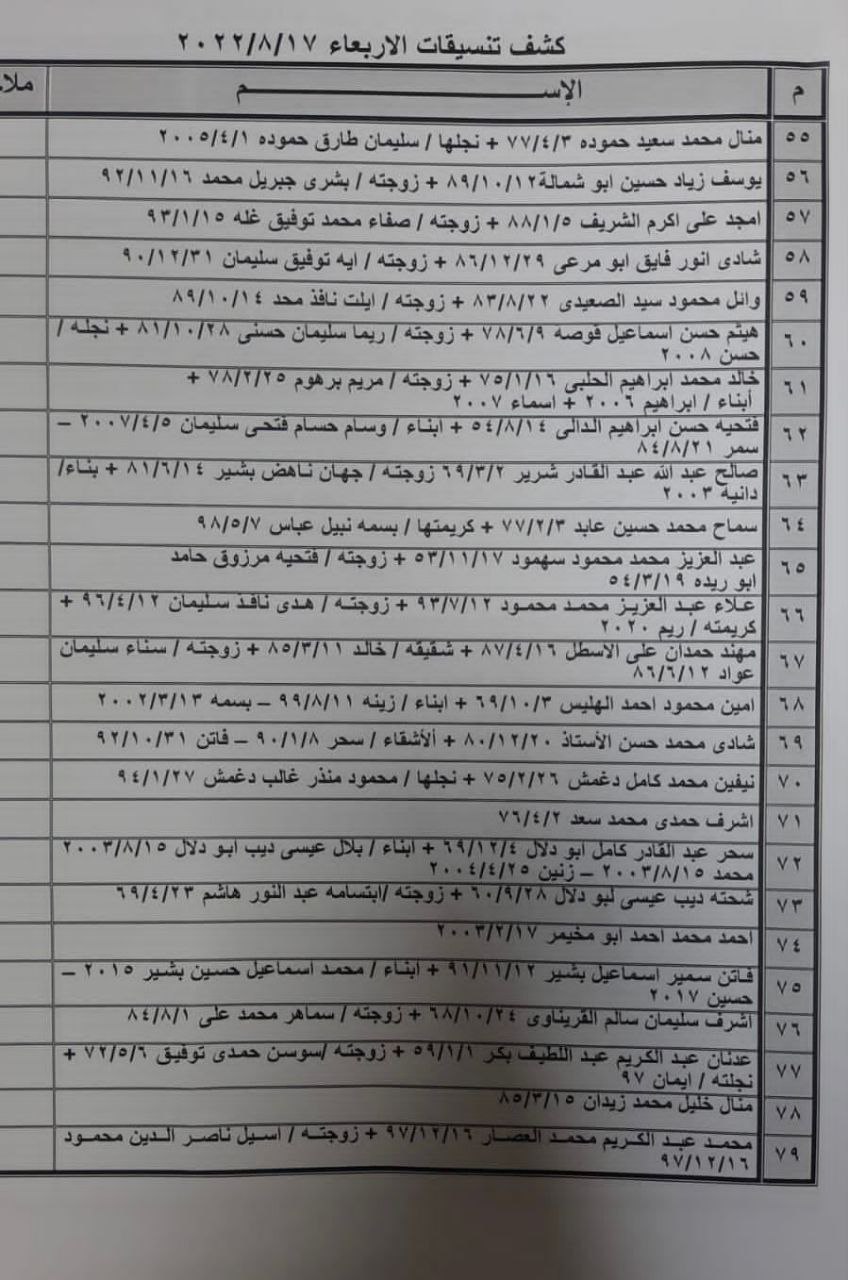 كشف تنسيقات الاربعاء ٢٠٢٢/٨/١٧
م الإســـم ملا
٥٥ منال محمد سعيد حموده ٧٧/٤/٣ + نجلها / سليمان طارق حموده ٢٠٠٥/٤/١
٥٦ يوسف زياد حسين ابو شمالة ٨٩/١٠/١٢ + زوجته / بشرى جبريل محمد ٩٢/١١/١٦
٥٧ امجد على اكرم الشريف ٨٨/١/٥ + زوجته / صفاء محمد توفيق غله ٩٣/١/١٥
٥٨ شادى انور فايق ابو مرعى ٨٦/١٢/٢٩ + زوجته / ايه توفيق سليمان ٩٠/١٢/٣١
٥٩ وائل محمود سيد الصعيدى ٨٣/٨/٢٢ + زوجته / ايلت نافذ محد ٨٩/١٠/١٤
٦٠ هيثم حسن اسماعيل قوصه ٧٨/٦/٩ + زوجته / ريما سليمان حسنى ٨١/١٠/٢٨ + نجله /
حسن ٢٠٠٨
٦١ خالد محمد ابراهيم الحلبى ٧٥/١/١٦ + زوجته / مريم برهوم ٧٨/٢/٢٥ +
أبناء / ابراهيم ٢٠٠٦ + اسماء ٢٠٠٧
٦٢ فتحيه حسن ابراهيم الدالى ٥٤/٨/١٤ + ابناء / وسام حسام فتحى سليمان ٢٠٠٧/٤/٥ –
سمر ٨٤/٨/٢١
٦٣ صالح عبد الله عبد القادر شرير ٦٩/٣/٢ زوجته / جهان ناهض بشير ٨١/٦/١٤ + بناء/
دانية ٢٠٠٣
٦٤ سماح محمد حسين عابد ٧٧/٢/٣ + كريمتها / بسمه نبيل عباس ٩٨/٥/٧
٦٥ عبد العزيز محمد محمود سهمود ٥٣/١١/١٧ + زوجته / فتحيه مرزوق حامد
ابو ريده ٥٤/٣/١٩
٦٦ علاء عبد العزيز محمد محمود ٩٣/٧/١٢ + زوجته / هدى نافذ سليمان ٩٦/٤/١٢ +
كريمته / ريم ٢٠٢٠
٦٧ مهند حمدان على الاسطل ٨٧/٤/١٦ + شقيقه / خالد ٨٥/٣/١١ + زوجته / سناء سليمان
عواد ٨٦/٦/١٢
٦٨ امين محمود احمد الهليس ٦٩/١٠/٣ + ابناء / زينه ٩٩/٨/١١ – بسمه ٢٠٠٢/٣/١٣
٦٩ شادى محمد حسن الأستاذ ٨٠/١٢/٢٠ + ألأشقاء / سحر ٩٠/١/٨ – فاتن ٩٢/١٠/٣١
٧٠ نيفين محمد كامل دغمش ٧٥/٢/٢٦ + نجلها / محمود منذر غالب دغمش ٩٤/١/٢٧
٧١ اشرف حمدى محمد سعد ٧٦/٤/٢
٧٢ سحر عبد القادر كامل ابو دلال ٦٩/١٢/٤ + ابناء / بلال عيسى ديب ابو دلال ٢٠٠٣/٨/١٥
محمد ٢٠٠٣/٨/١٥ – زنين ٢٠٠٤/٤/٢٥
٧٣ شحته ديب عيسى ابو دلال ٦٠/٩/٢٨ + زوجته /ابتسامه عبد النور هاشم ٦٩/٤/٢٣
٧٤ احمد محمد احمد ابو مخيمر ٢٠٠٣/٢/١٧
٧٥ فاتن سمير اسماعيل بشير ٩١/١١/١٢ + ابناء / محمد اسماعيل حسين بشير ٢٠١٥ –
حسين ٢٠١٧
٧٦ اشرف سليمان سالم القريناوى ٦٨/١٠/٢٤ + زوجته / سماهر محمد على ٨٤/٨/١
٧٧ عدنان عبد الكريم عبد اللطيف بكر ٥٩/١/١ + زوجته /سوسن حمدى توفيق ٧٢/٥/٦ +
نجلته / ايمان ٩٧
٧٨ منال خليل محمد زيدان ٨٥/٣/١٥
٧٩ محمد عبد الكريم محمد العصار ٩٧/١٢/١٦ + زوجته / اسيل ناصر الدين محمود
٩٧/١٢/١٦